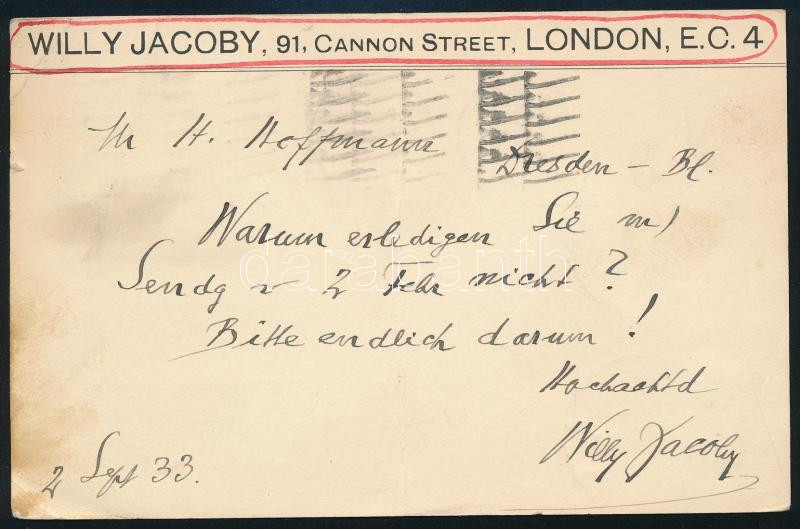 WILLY JACOBY, 91, CANNON STREET, LONDON, E.C. 4
H. Hoffmann
Dresden – Bl.
Warum erledigen Sie m/
Sendg v 2 Febr nicht ?
Bitte endlich darum !
Hochachtd
Willy Jacoby
2 Sept 33.
darabanth